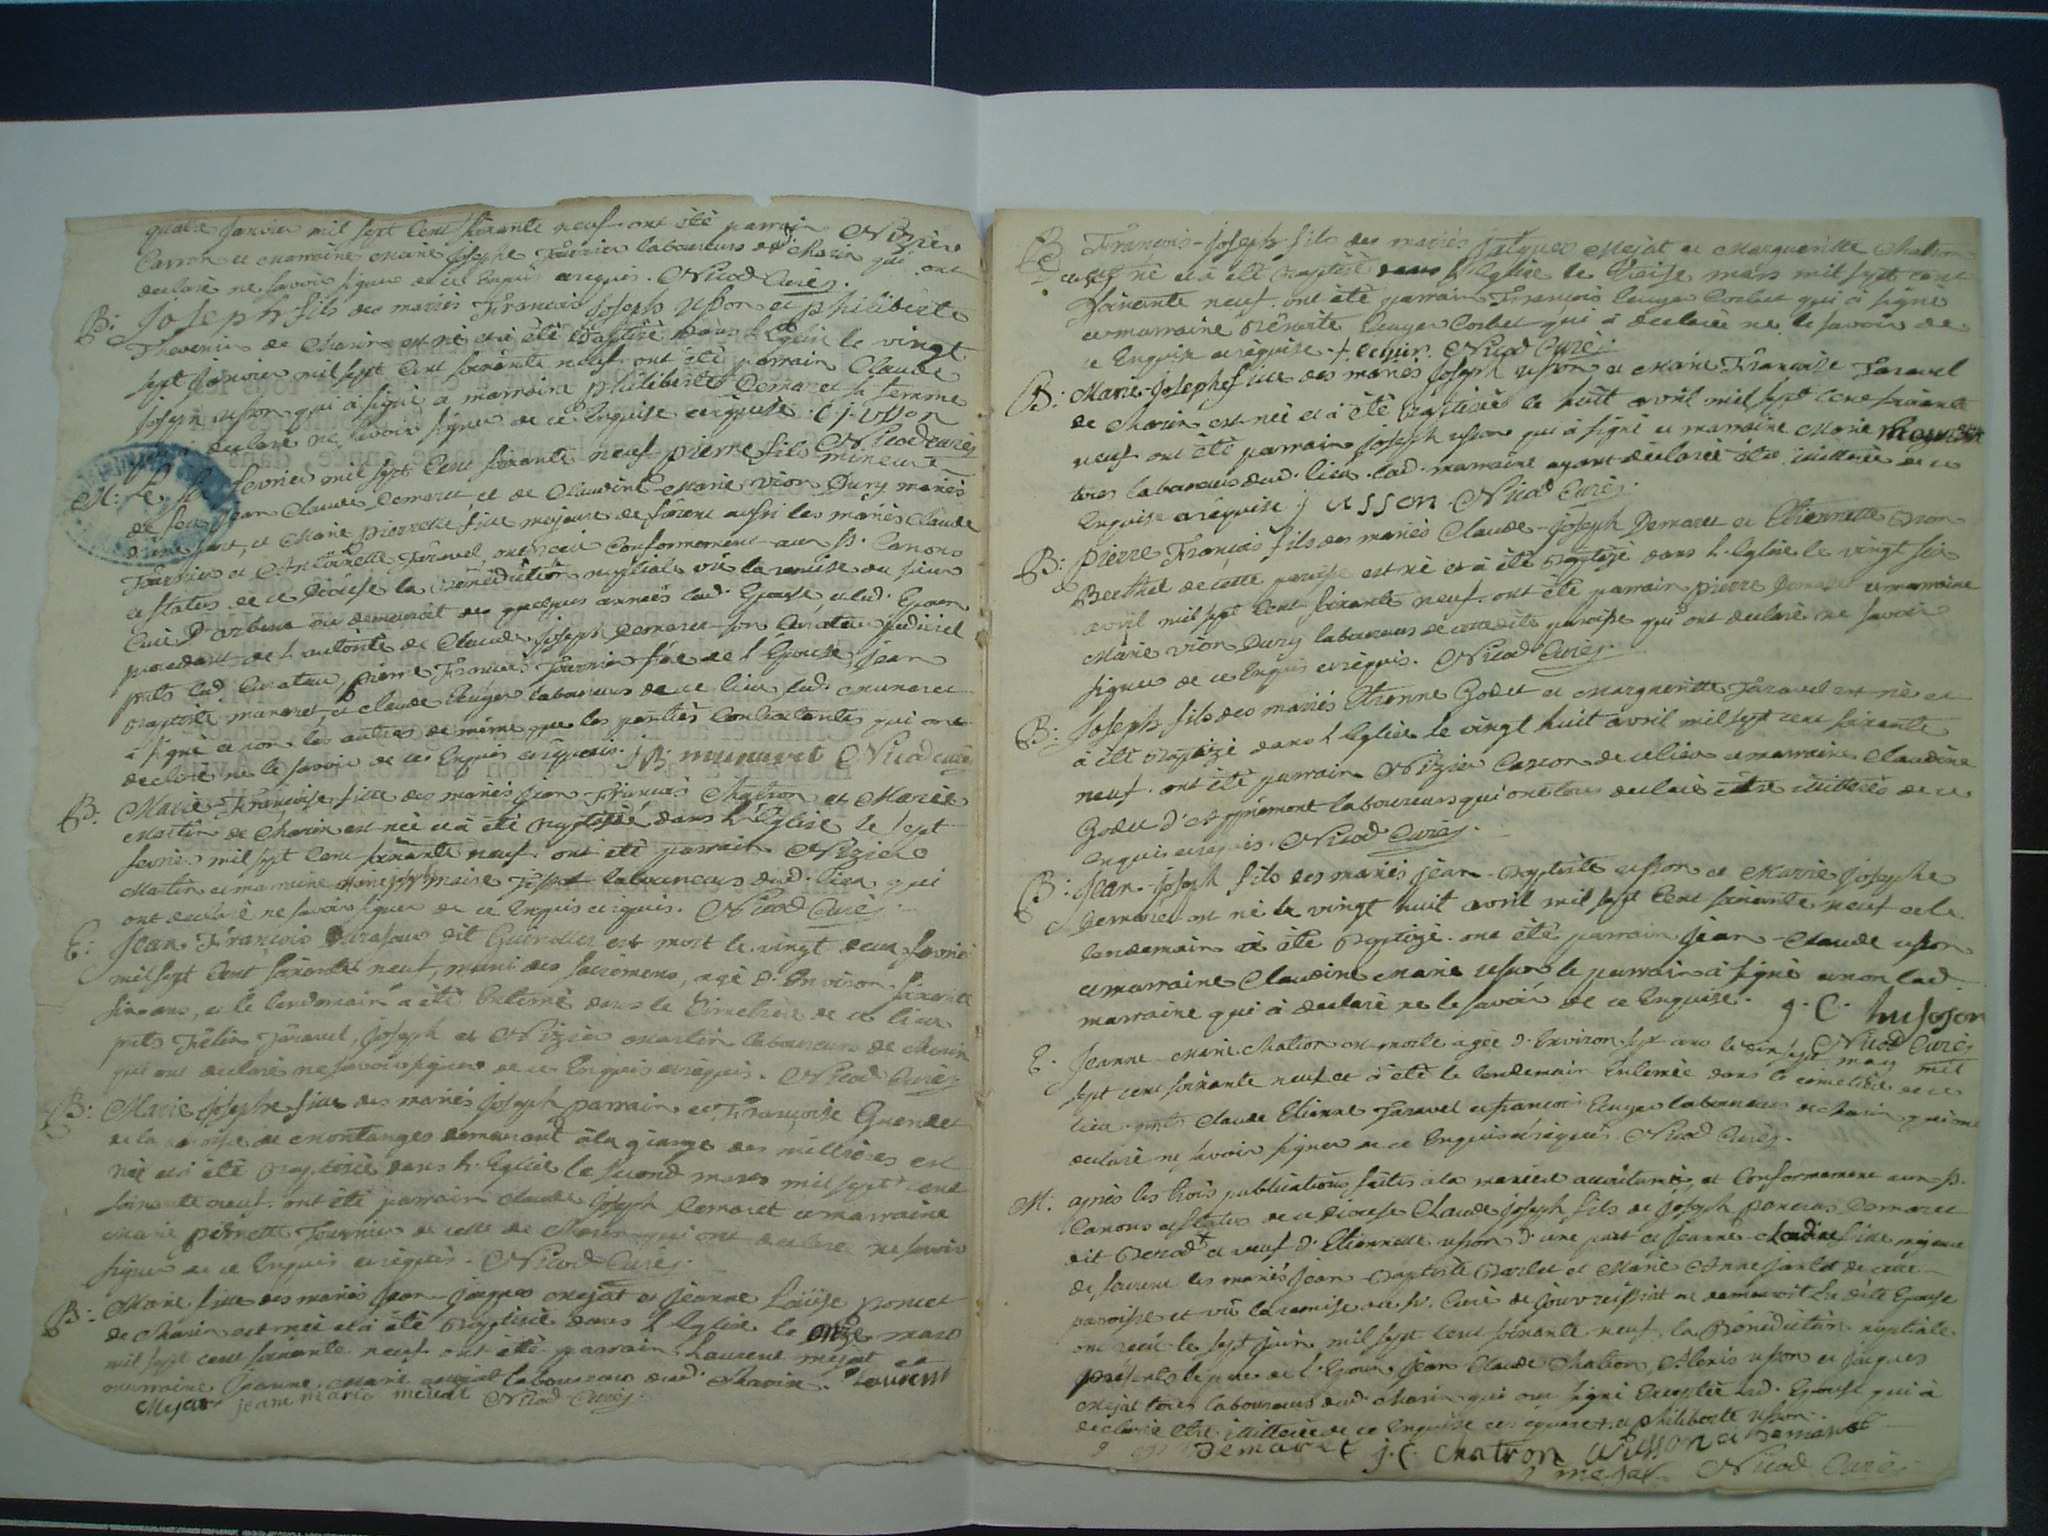 quatre janvier mil sept cent soixante neuf. ont été parrain Nizier
Carron et marraine Marie josephe Fournier laboureurs de Charix qui ont
declaré ne savoir signer de ce Enquis et requis. Nicod Curé.
B: Joseph fils des mariés François joseph usson et philiberte
Thevenin de Charix est né et a été Baptisé dans l'Eglise le vingt
sept janvier mil sept cent soixante neuf. ont été parrain Claude
joseph usson qui a signé et marraine philiberte Demaret sa femme
qui a declaré ne savoir signer de ce Enquise et requise. C. j. usson
Nicod curé
M: Le six fevrier mil sept cent soixante neuf pierre fils mineur
de feu jean Claude Demaret, et de Claudine Marie vion Dury mariés
d'une part, et Marie pierrette fille majeure de furent aussi les mariés Claude
Fournier et Antoinette Taravel, ont reçu Conformement aux st. Canons
et statuts de ce Diocese la Bénédiction nuptiale vû la remise du sieur
Curé D'arbent où demeuroit des quelques années lad. Epouse et led. Epoux
procedant de l'autorité de Claude joseph Demaret son Curateur judiciel
prts. led. Curateur, pierre François Fournier frere de l'Epouse, jean
Baptiste munaret, et Claude Cuger laboureurs de ce lieu led. munaret
a signé et non les autres de même que les parties Contractantes qui ont
declaré ne le savoir de ce Enquis et requis. j B. munaret Nicod curé
B: Marie Françoise fille des mariés jean-François Chatron et Marie
Martin de Charix est née et a été Baptisée dans l'Eglise le sept
fevrier mil sept cent soixante neuf. ont été parrain Nizier
Martin et marraine laboureurs dud. lieu qui
ont declaré ne savoir signer de ce Enquis et requis. Nicod Curé.
E: Jean François dit est mort le vingt deux fevrier
mil sept cent soixante neuf, muni des sacremens, agé d'Environ soixante
six ans, et le lendemain a été Enterré dans le Cimetiere de ce lieu
prts Felix Taravel, joseph et Nizier Martin laboureurs de Charix
qui ont declaré ne savoir signer de ce Enquis et requis. Nicod Curé
B: Marie josephe fille des mariés joseph parrain et Françoise Guendet
de la paroisse de Montanges demeurant à la grange des millieres est
née et a été Baptisée dans l'Eglise le second mars mil sept cent
soixante neuf. ont été parrain Claude joseph Demaret et marraine
Marie pierrette Fournier de celle de Charix qui ont declaré ne savoir
signer de ce Enquis et requis. Nicod Curé.
B: Marie fille des mariés jean-jacques Mejat et jeanne Loüise poncet
de Charix est née et a été Baptisée dans l'Eglise le onze mars
mil sept cent soixante neuf. ont été parrain Laurent mejat et
marraine jeanne Marie laboureurs dud. Charix. Laurent
Mejat jeane marie Nicod Curé.
B: François-joseph fils des mariés jacques Mejat et Margueritte Chatron
est né et a été Baptisé dans l'Eglise le treise mars mil sept cent
soixante neuf. ont été parrain François Cuger Corbet qui a signé
et marraine Benoite Cuger Corbet qui a declaré ne le savoir de
ce Enquise et requise. f. Nicod Curé.
B: Marie-Josephe fille des mariés joseph usson et Marie Françoise Taravel
de Charix est née et a été Baptisée le huit avril mil sept cent soixante
neuf. ont été parrain joseph usson qui a signé et marraine Marie
tous laboureurs dud. lieu. lad. marraine ayant declaré être illitterée de ce
Enquise et requise j usson Nicod Curé.
B: Pierre François fils des mariés Claude-joseph Demaret et Etiennette
Berthet de cette paroisse est né et a été Baptizé dans l'Eglise le vingt six
avril mil sept cent soixante neuf. ont été parrain pierre Demaret et marraine
Marie vion Dury laboureurs de cette dite paroisse qui ont declaré ne savoir
signer de ce Enquis et requis. Nicod Curé.
B: Joseph fils des mariés Etienne Godet et Margueritte Taravel est né et
a été Baptizé dans l'Eglise le vingt huit avril mil sept cent soixante
neuf. ont été parrain Nizier Carron de ce lieu et marraine Claudine
Godet d'Apprémont laboureurs qui ont tous declaré être illitterés de ce
enquis et requis. Nicod Curé.
B: Jean-joseph fils des mariés jean-Baptiste usson et Marie josephe
Demaret est né le vingt huit avril mil sept cent soixante neuf et le
lendemain a été Baptizé. ont été parrain jean-Claude usson
et marraine Claudine Marie usson le parrain a signé et non lad.
marraine qui a declaré ne le savoir de ce Enquise. j. C. husson
Nicod Curé
E. Jeanne-Marie Chatron est morte agée d'Environ sept ans le dix sept may mil
sept cent soixante neuf et a été le lendemain Enterrée dans le cimetiere de ce
lieu. prts Claude Etienne Taravel et françois Cuger laboureurs de Charix qui ont
declaré ne savoir signer de ce Enquis et requis. Nicod Curé.
M: après les trois publications faites à la maniere accoutumée, et Conformement aux st.
Canons et statuts de ce Diocese Claude joseph fils de joseph poncras Demaret
dit et veuf d'Etiennette usson d'une part et jeanne-Claudine fille majeure
de furent les mariés jean-Baptiste Barlet et Marie Anne de cette
paroisse et vû la remise du sr. Curé de où demeuroit La dite Epouse
ont reçu le sept juin mil sept cent soixante neuf, la Bénédiction nuptiale
présents le pere de l'Epoux, jean Claude Chatron, Alexis usson et jacques
Mejat tous laboureurs dud. Charix qui ont signé Exceptée lad. Epouse qui a
declaré être illitterée de ce Enquise et requise et philiberte usson.
Demaret j. C. chatron usson Demaret
mejat Nicod Curé